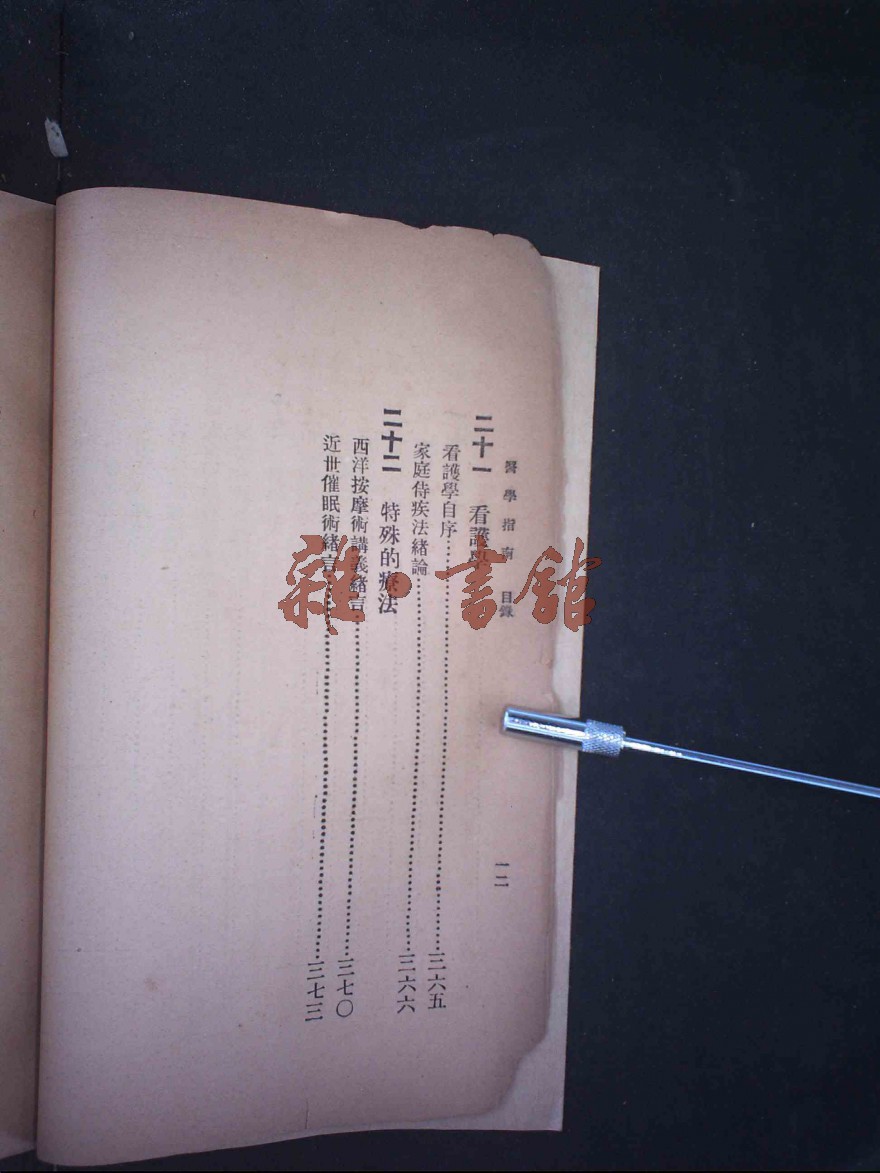 醫學指南　目錄　一二
二十一　看護學
看護學自序……三六五
家庭侍疾法緒論……三六六
二十二　特殊的療法
西洋按摩術講義緒言……三七〇
近世催眠術緒言……三七三
雜·書館